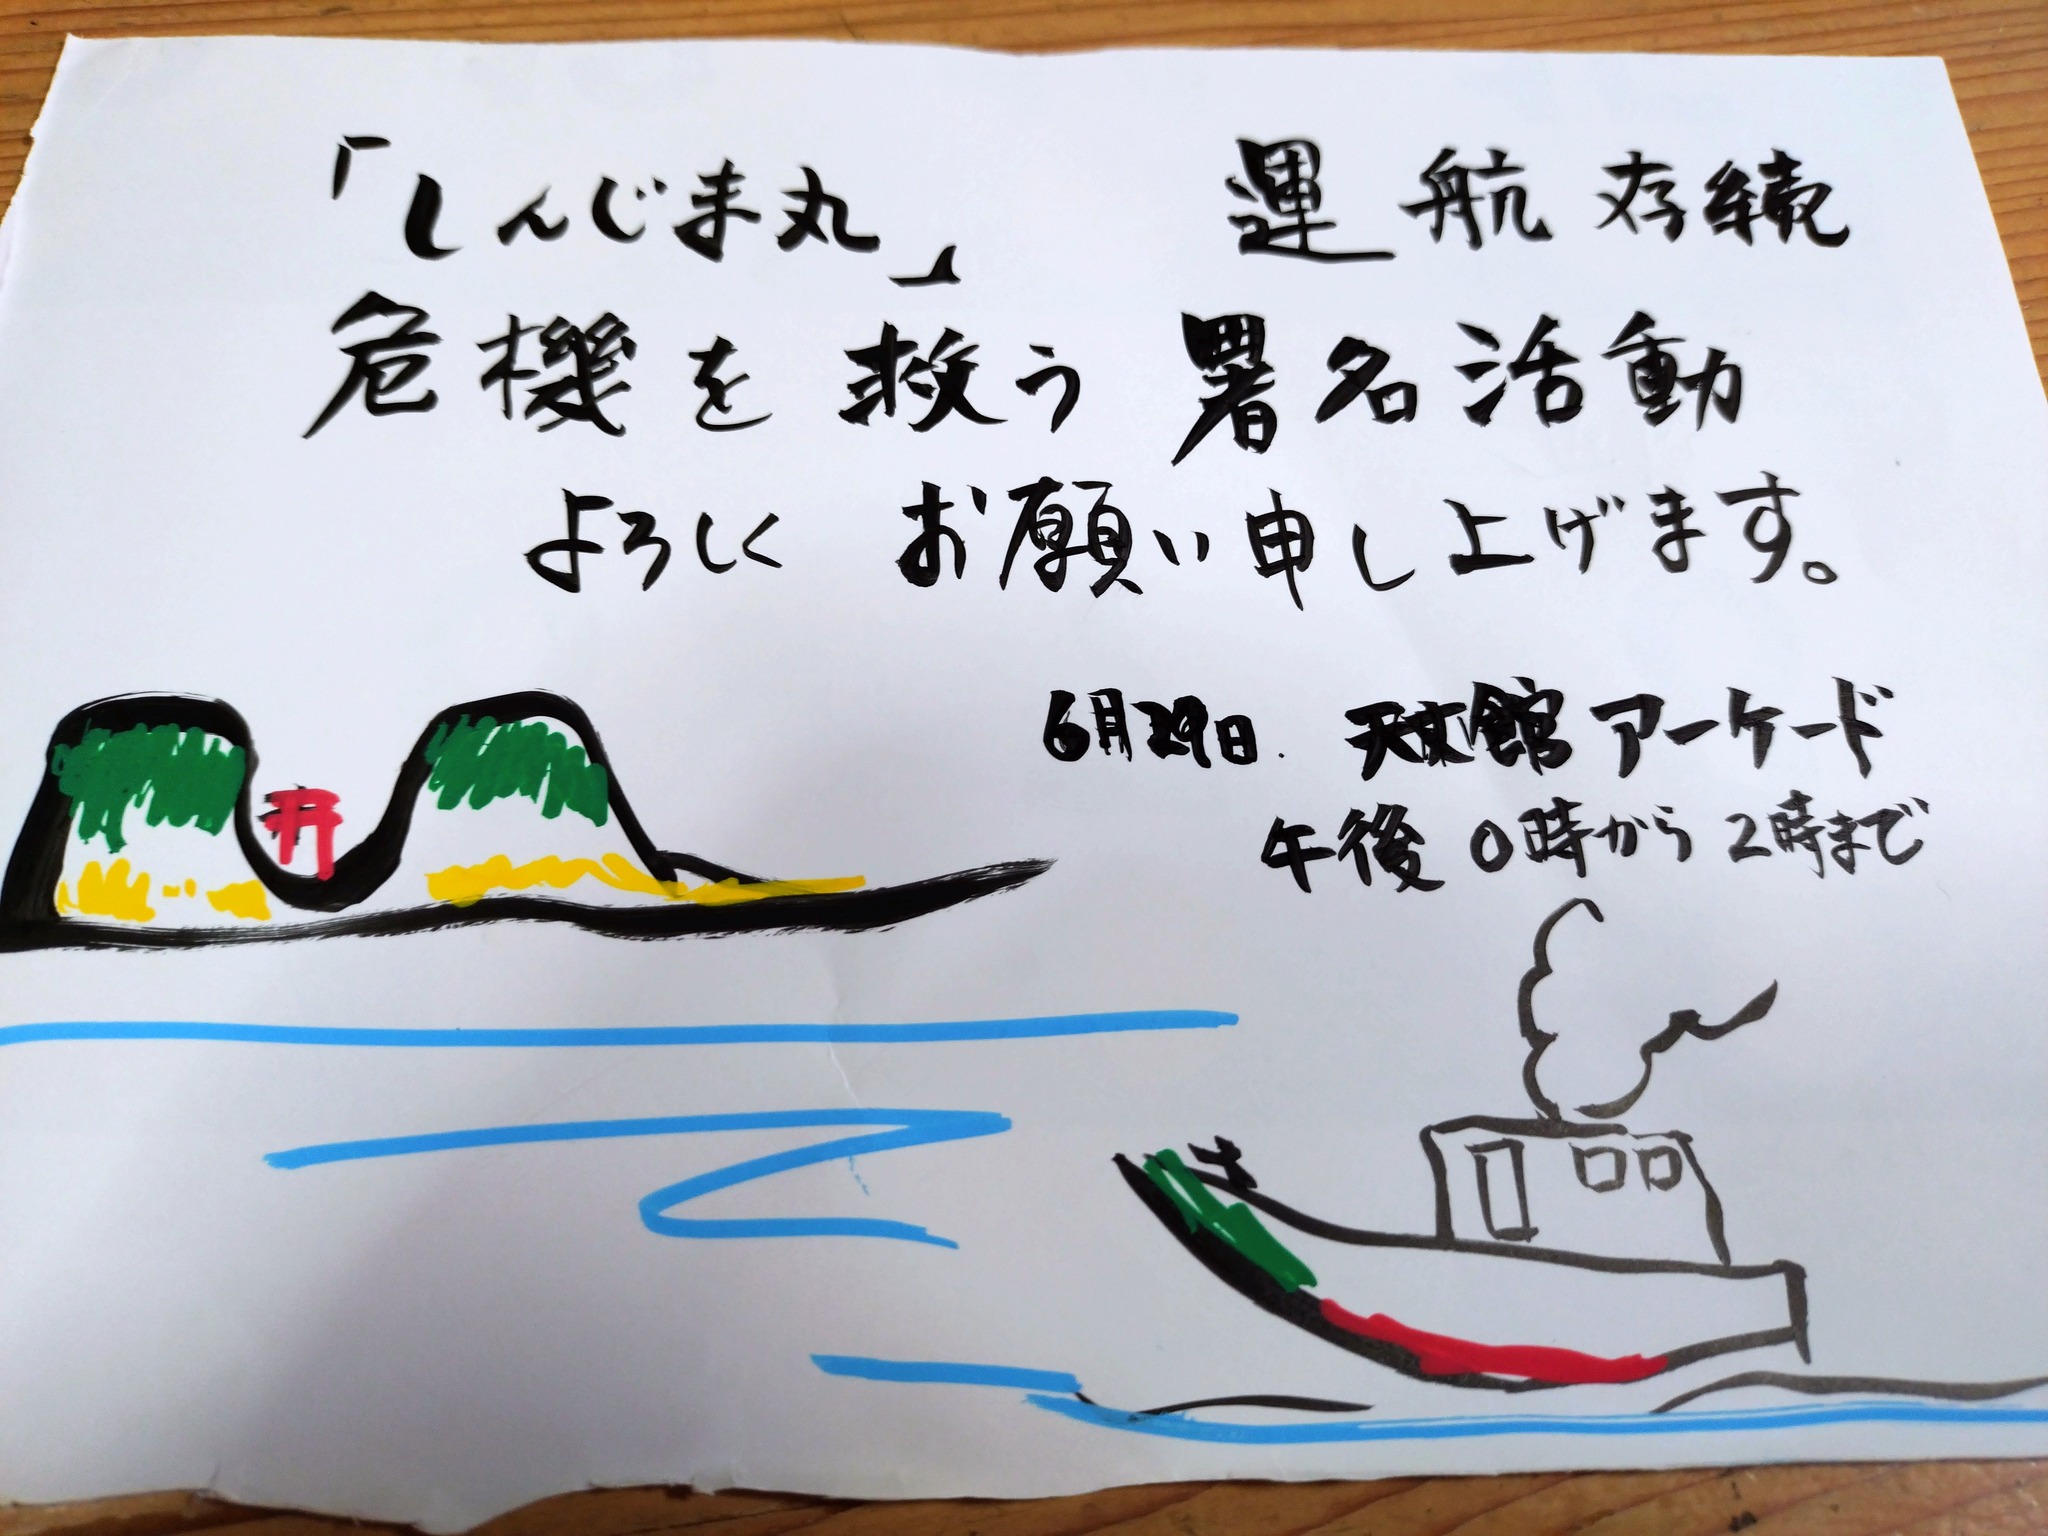 「しんじま丸」 運航存続
危機を救う署名活動
よろしくお願い申し上げます。
6月29日. 天文館アーケード
午後0時から2時まで